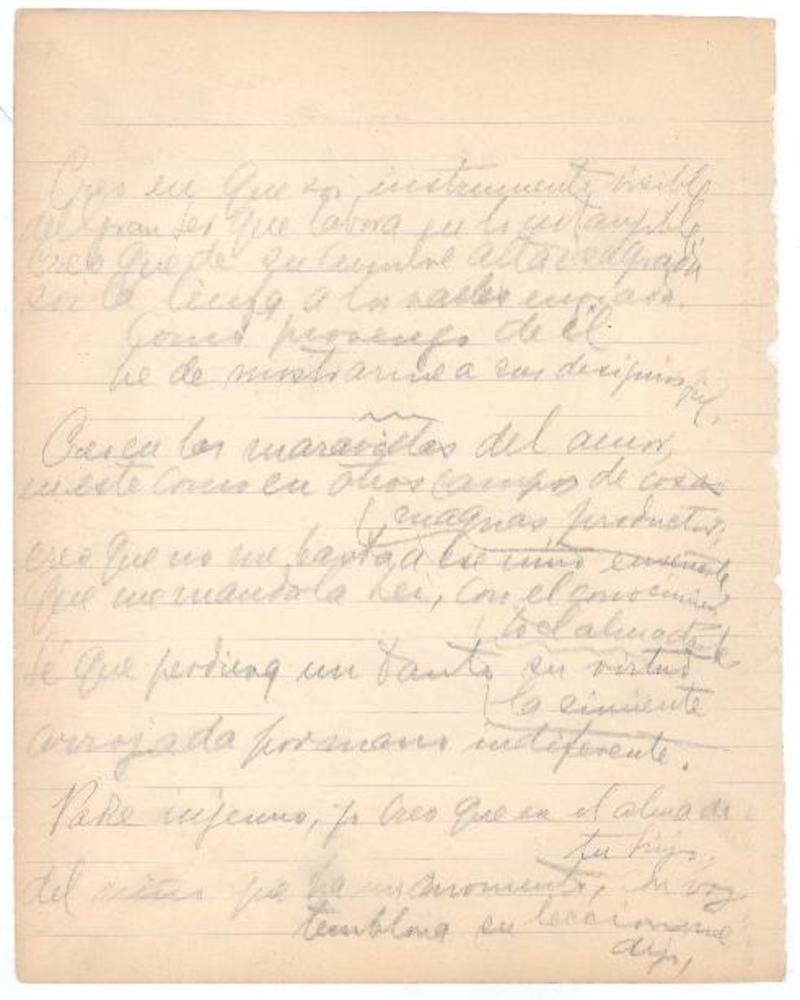 Creo en que soi instrumento visible
del gran ser que labora en lo intanjible
creo que de su cumbre alta i sagrada
soi la a los enviada.
Como provengo de él
he de mostrarme a sus designios fiel.
Creo en las maravillas del amor,
en este como en otros campos de cosas
magnas productor,
creo que no me basta a ese niño enseñarle
que me manda la Lei, con el conocimien
to el alma darle
Sé que perdiera un tanto su virtud
la simiente
arrojada por mano indiferente.
Padre injenuo, yo creo que en el alma de
tu hijo,
del niño que ha un momento, su voz
temblona su leccion me
dijo,